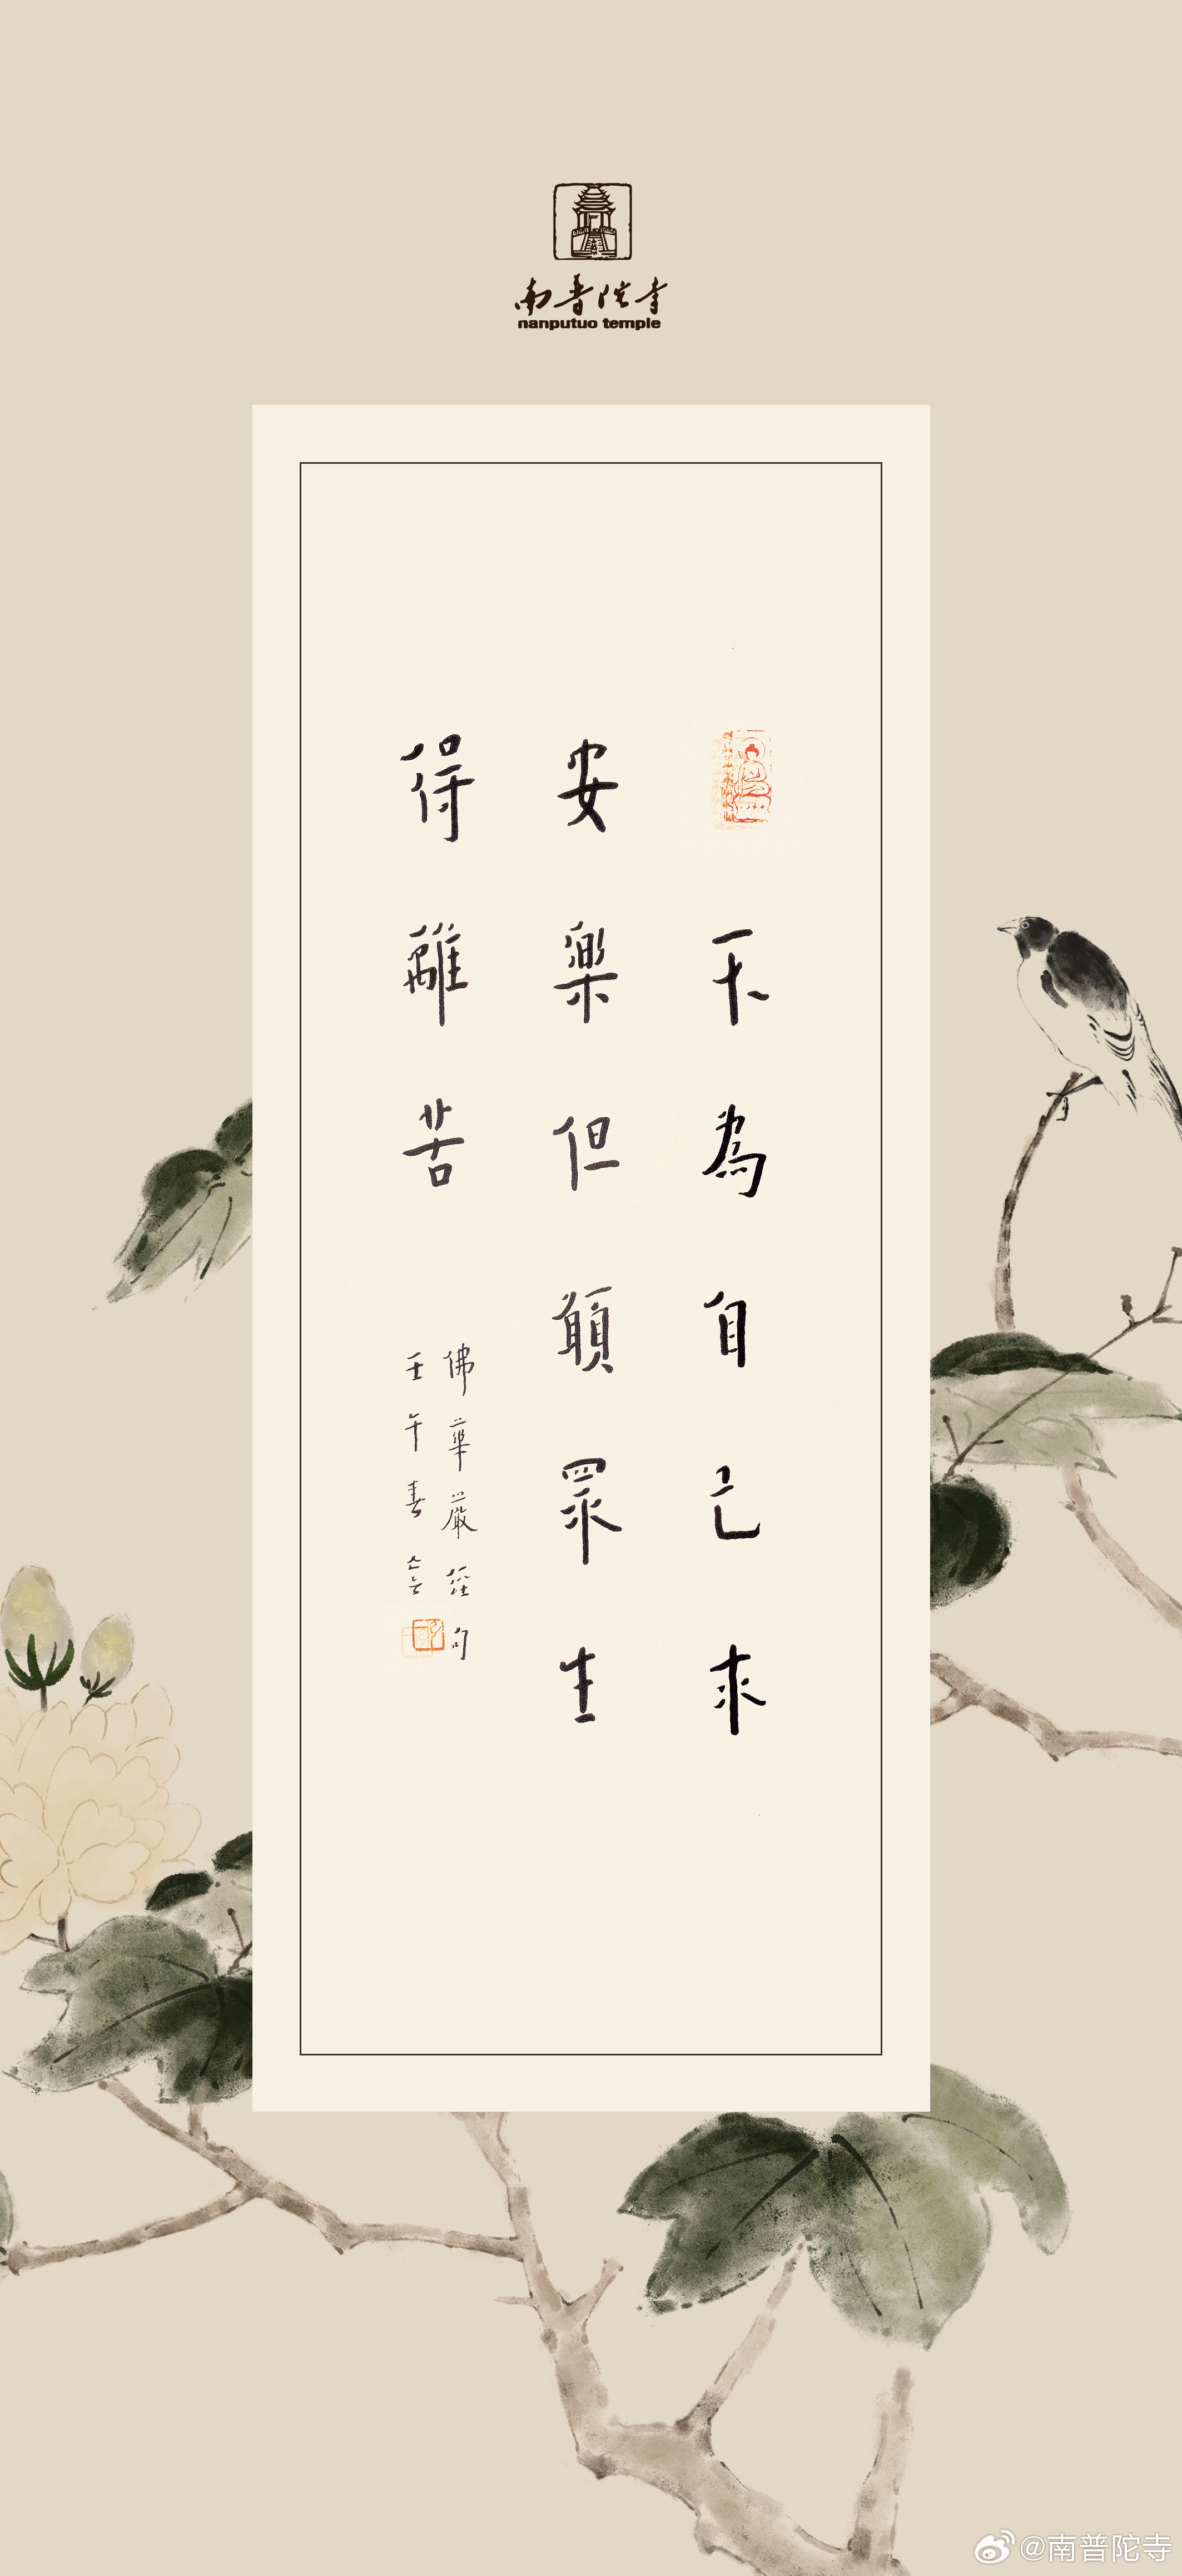 南普陀寺
nanputuo temple
不為自己求
安樂但願眾生
得離苦
佛華嚴經句
壬午春
@南普陀寺